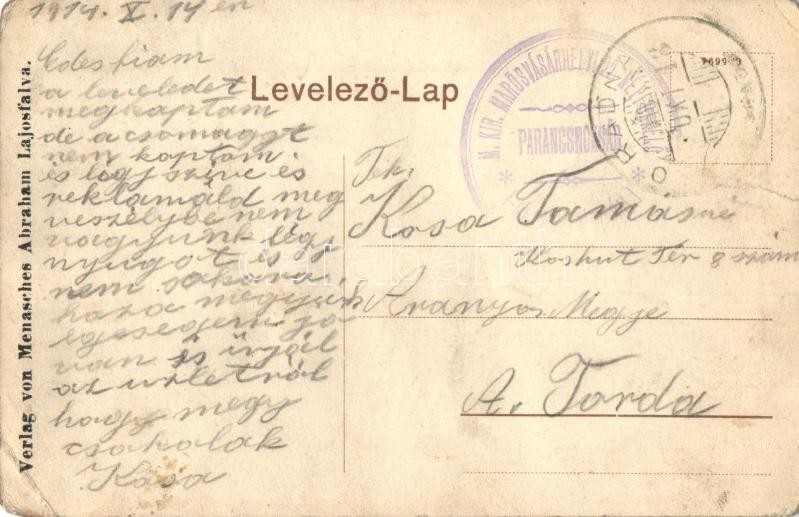 1914. X. 14 én
Edes fiam
a leveledet
megkaptam
de a csomagot
nem kaptam.
és légy szíve és
reklamáld meg
veszélybe nem
vagyunk légy
nyugot és
nem sokára
haza megyünk
egeszegem jo
van és irjál
az uzletról
hogy megy
csokolak
Kosa
Verlag von Menasches Abraham Lajosfalva.
Levelező-Lap
M. KIR. MAROSVÁSÁRHELYI
PARANCSNOKSÁG
ÓRADNA
Tek.
Kosa Tamásné
Koshut Tér 8 szám
Aranyos Megye
A. Torda
darabanth